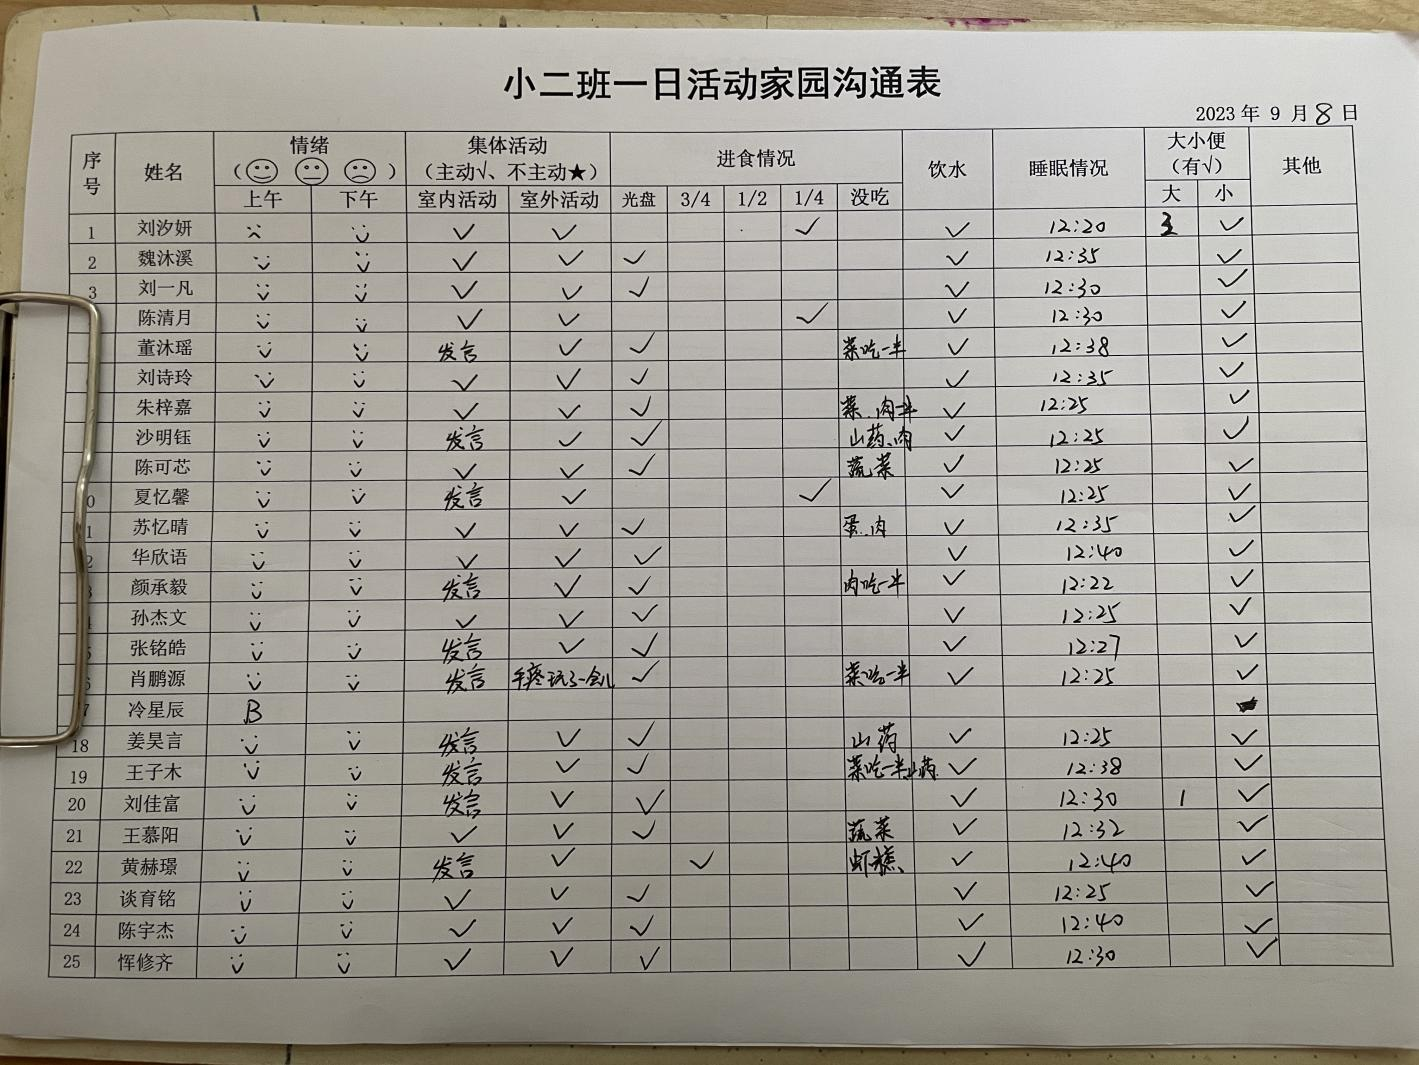 小二班一日活动家园沟通表
2023 年 9 月 8 日
序号 姓名 情绪 ( ) 集体活动 (主动√、不主动★) 进食情况 饮水 睡眠情况 大小便 (有√) 其他
上午 下午 室内活动 室外活动 光盘 3/4 1/2 1/4 没吃 大 小
1 刘汐妍 ✓ ✓ ✓ ✓ 12:20 ✓
2 魏沐溪 ✓ ✓ ✓ ✓ 12:35 ✓
3 刘一凡 ✓ ✓ ✓ ✓ 12:30 ✓
陈清月 ✓ ✓ ✓ ✓ 12:30 ✓
董沐瑶 发言 ✓ ✓ 菜吃一半 ✓ 12:38 ✓
刘诗玲 ✓ ✓ ✓ ✓ 12:35 ✓
朱梓嘉 ✓ ✓ ✓ 菜、肉一半 ✓ 12:25 ✓
沙明钰 发言 ✓ ✓ 山药、肉 ✓ 12:25 ✓
陈可芯 ✓ ✓ ✓ 蔬菜 ✓ 12:25 ✓
0 夏忆馨 发言 ✓ ✓ ✓ 12:25 ✓
1 苏忆晴 ✓ ✓ ✓ 蛋、肉 ✓ 12:35 ✓
2 华欣语 ✓ ✓ ✓ ✓ 12:40 ✓
3 颜承毅 发言 ✓ ✓ 肉吃一半 ✓ 12:22 ✓
4 孙杰文 ✓ ✓ ✓ ✓ 12:25 ✓
5 张铭皓 发言 ✓ ✓ ✓ 12:27 ✓
6 肖鹏源 发言 手疼玩了一会儿 ✓ 菜吃一半 ✓ 12:25 ✓
7 冷星辰 B
18 姜昊言 发言 ✓ ✓ 山药 ✓ 12:25 ✓
19 王子木 发言 ✓ ✓ 菜吃一半山药 ✓ 12:38 ✓
20 刘佳富 发言 ✓ ✓ ✓ 12:30 1 ✓
21 王慕阳 ✓ ✓ ✓ 蔬菜 ✓ 12:32 ✓
22 黄赫璟 发言 ✓ ✓ 虾糕、 ✓ 12:40 ✓
23 谈育铭 ✓ ✓ ✓ ✓ 12:25 ✓
24 陈宇杰 ✓ ✓ ✓ ✓ 12:40 ✓
25 恽修齐 ✓ ✓ ✓ ✓ 12:30 ✓